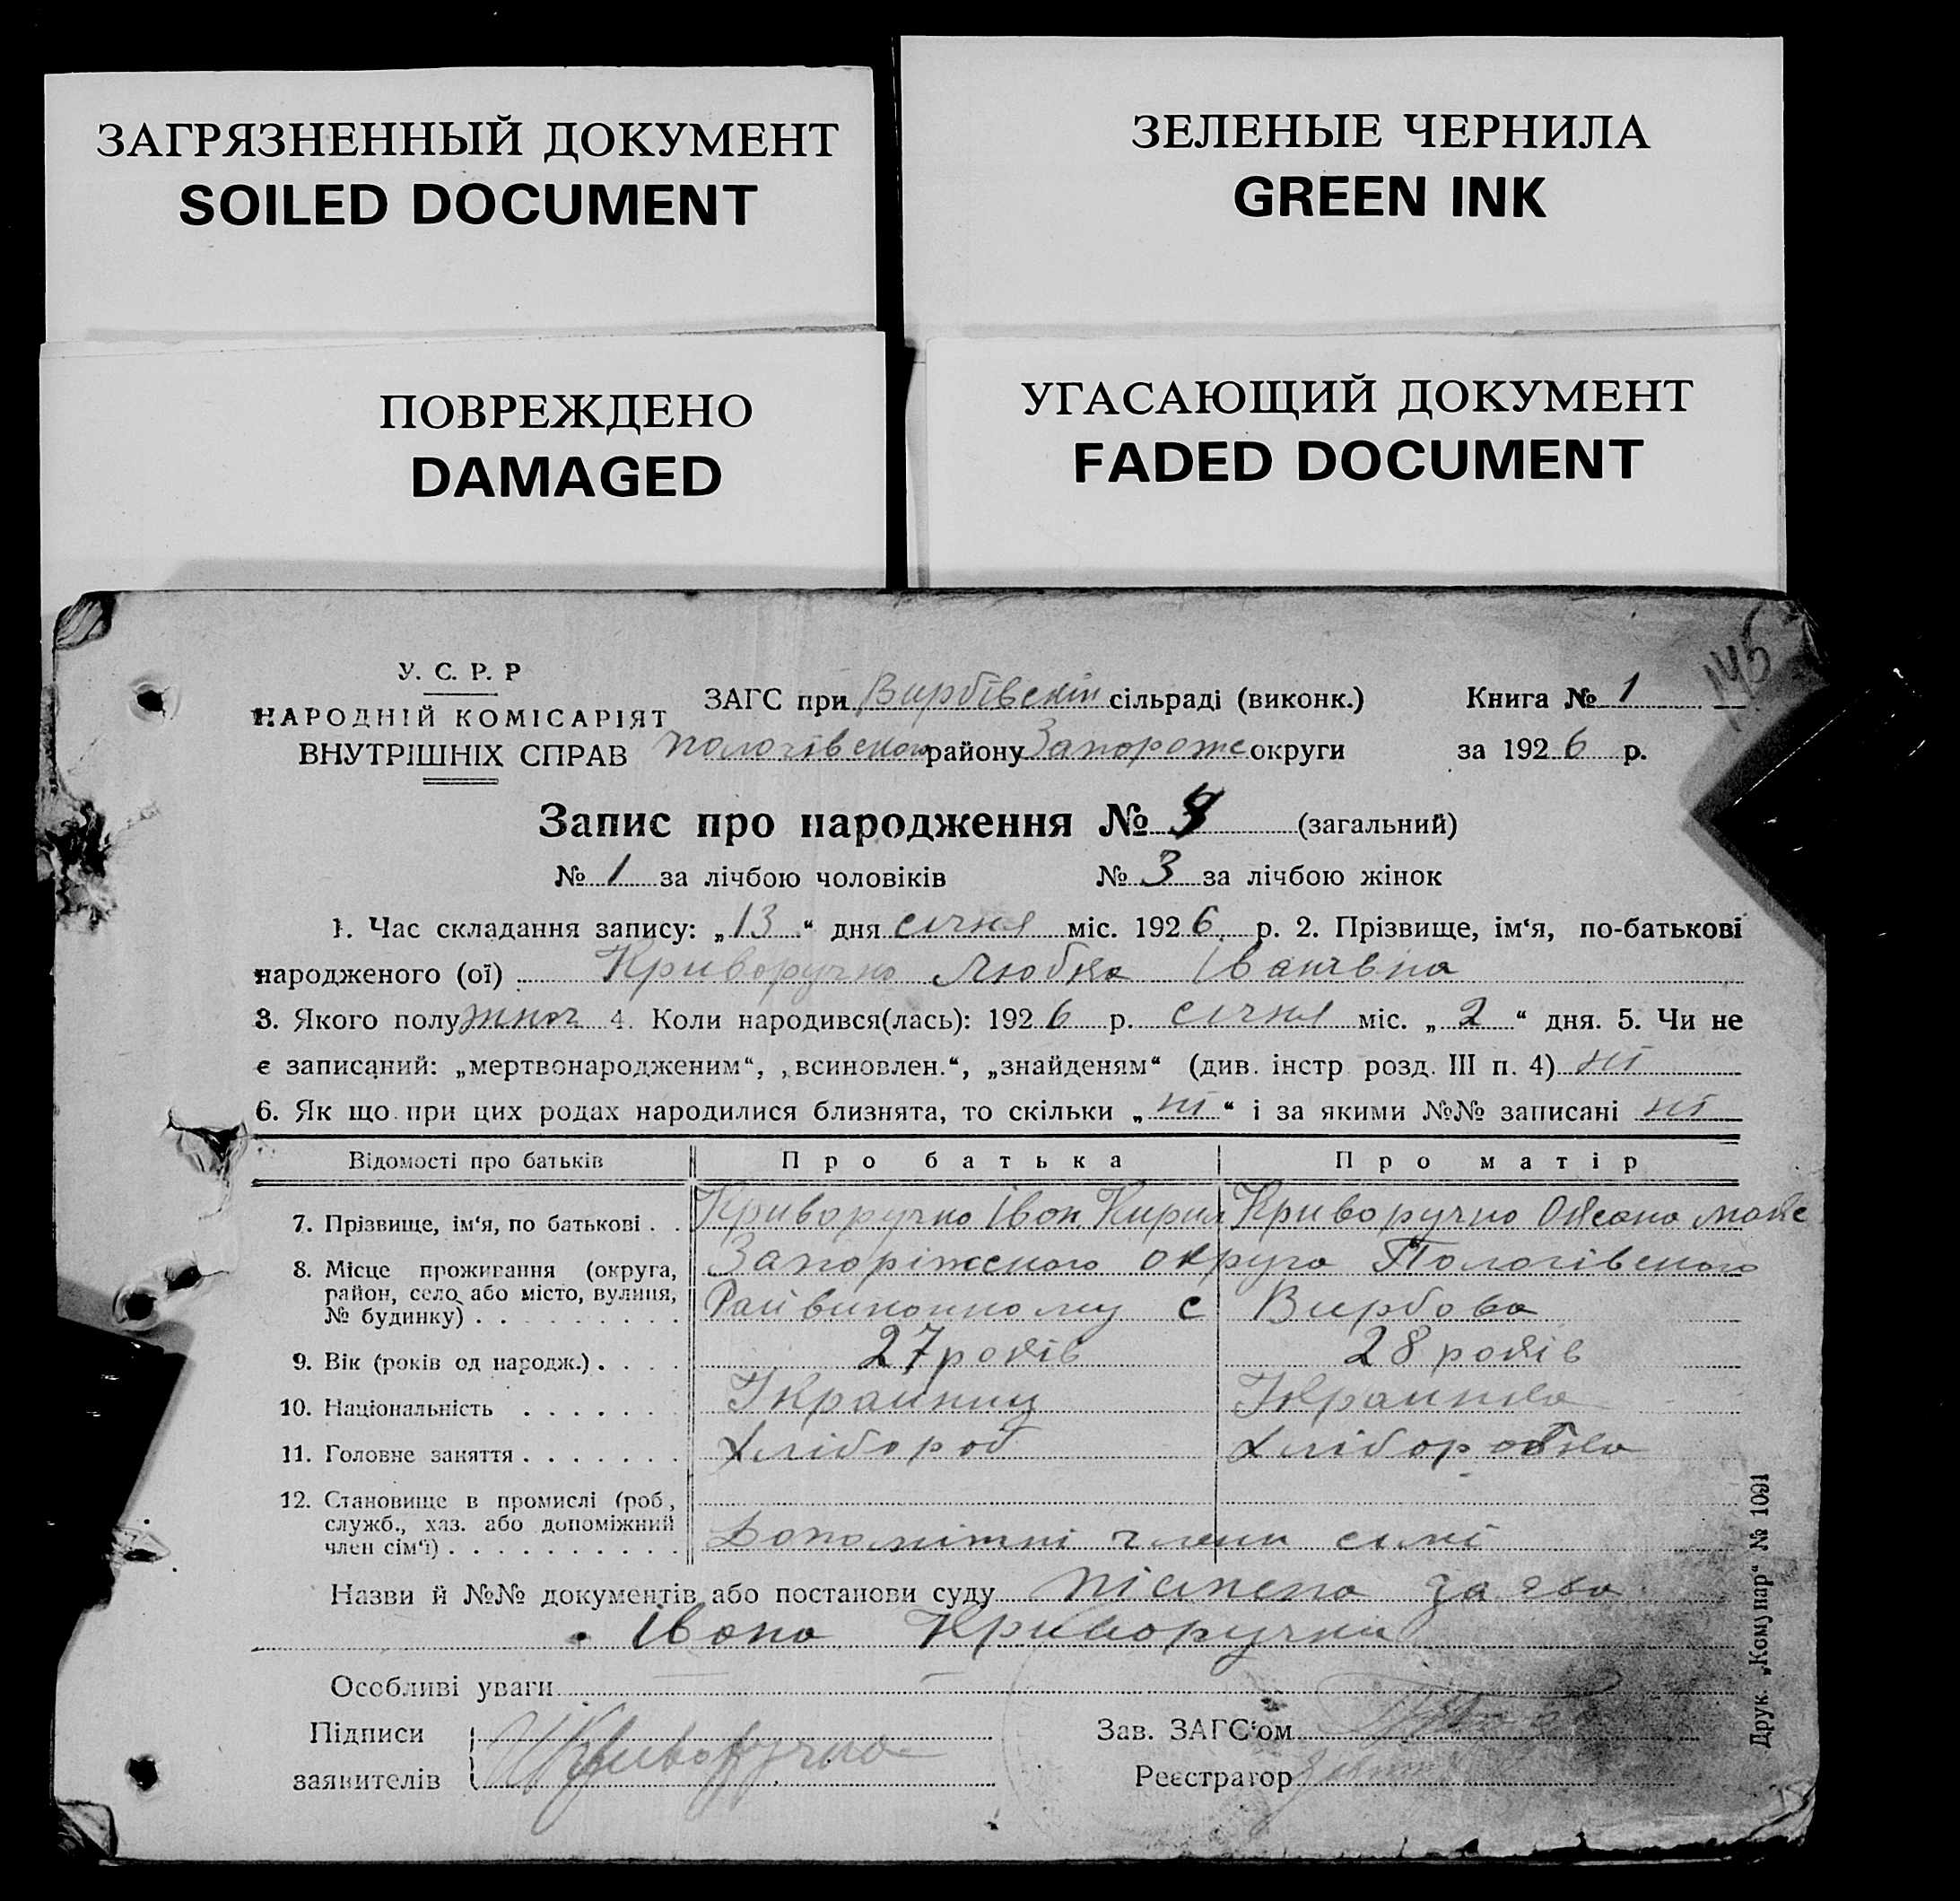 ЗАГРЯЗНЕННЫЙ ДОКУМЕНТ
SOILED DOCUMENT
ЗЕЛЕНЫЕ ЧЕРНИЛА
GREEN INK
ПОВРЕЖДЕНО
DAMAGED
УГАСАЮЩИЙ ДОКУМЕНТ
FADED DOCUMENT
145
У. С. Р. Р
НАРОДНІЙ КОМІСАРІЯТ
ВНУТРІШНІХ СПРАВ
ЗАГС при Вирбівскій сільраді (виконк.) Книга № 1
Пологівского району Запороже округи за 1926 р.
Запис про народження № 4 (загальний)
№ 1 за лічбою чоловіків № 3 за лічбою жінок
1. Час складання запису: „13“ дня січня міс. 1926 р. 2. Прізвище, ім'я, по-батькові
народженого (ої) Криворучко Любка Іванівна
3. Якого полу жіноч 4. Коли народився(лась): 1926 р. січня міс. „2“ дня. 5. Чи не
є записаний: „мертвонародженим“, „всиновлен.“, „знайденям“ (див. інстр розд. III п. 4) ні
6. Як що при цих родах народилися близнята, то скільки „ні“ і за якими №№ записані ні
Відомості про батьків Про батька Про матір
7. Прізвище, ім'я, по батькові . . Криворучко Іван Кирил Криворучко Оксана
8. Місце проживання (округа, Запоріжского округа Пологівского
район, село або місто, вулиця, Райвиконкому с Вирбова
№ будинку) . . . . . . . . .
9. Вік (років од народж.) . . . . 27 років 28 років
10. Національність . . . . . . Украинец Украинка
11. Головне заняття . . . . . . . Хлібороб Хліборобка
12. Становище в промислі (роб,
служб., хаз. або допоміжний Допоміжні члени сімї
член сім'ї) . . . . . . . . . .
Назви й №№ документів або постанови суду пісмена заява
Івана Криворучки
Особливі уваги
Підписи Зав. ЗАГС'ом
заявителів Криворучко Реєстратор
Друк. „Комунар“ № 1091